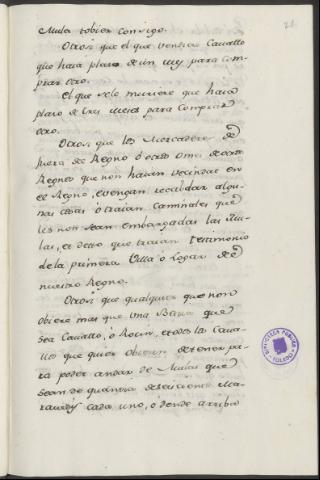 Mulas tobier consigo.
Otrosi que el que vendiere Cavallo
que haia plazo de un mes para com-
prar otro.
El que selo muriere que haia
plazo de tres meses para comprar
otro.
Otrosi, que los Mercaderes de
fuera del Regno ó otros omes de otros
Regnos que non haian vecindat en
el Regno, e vengan recabdar algu-
nas cosas ó traian caminales que
les non sean embargadas las Mu-
las, e desto que traian testimonio
de la primera Villa o Logar de
nuestro Regno.
Otrosi que qualquier que non
obiere mas que una Bestia que
sea Cavallo, ó Rocin, e todos los Cava-
llos que quier obieren de tener pa-
ra poder andar de Mulas que
sean de quantia de seiscientos Ma-
ravedis cada uno, ó dende arriba
BIBLIOTECA PUBLICA
TOLEDO